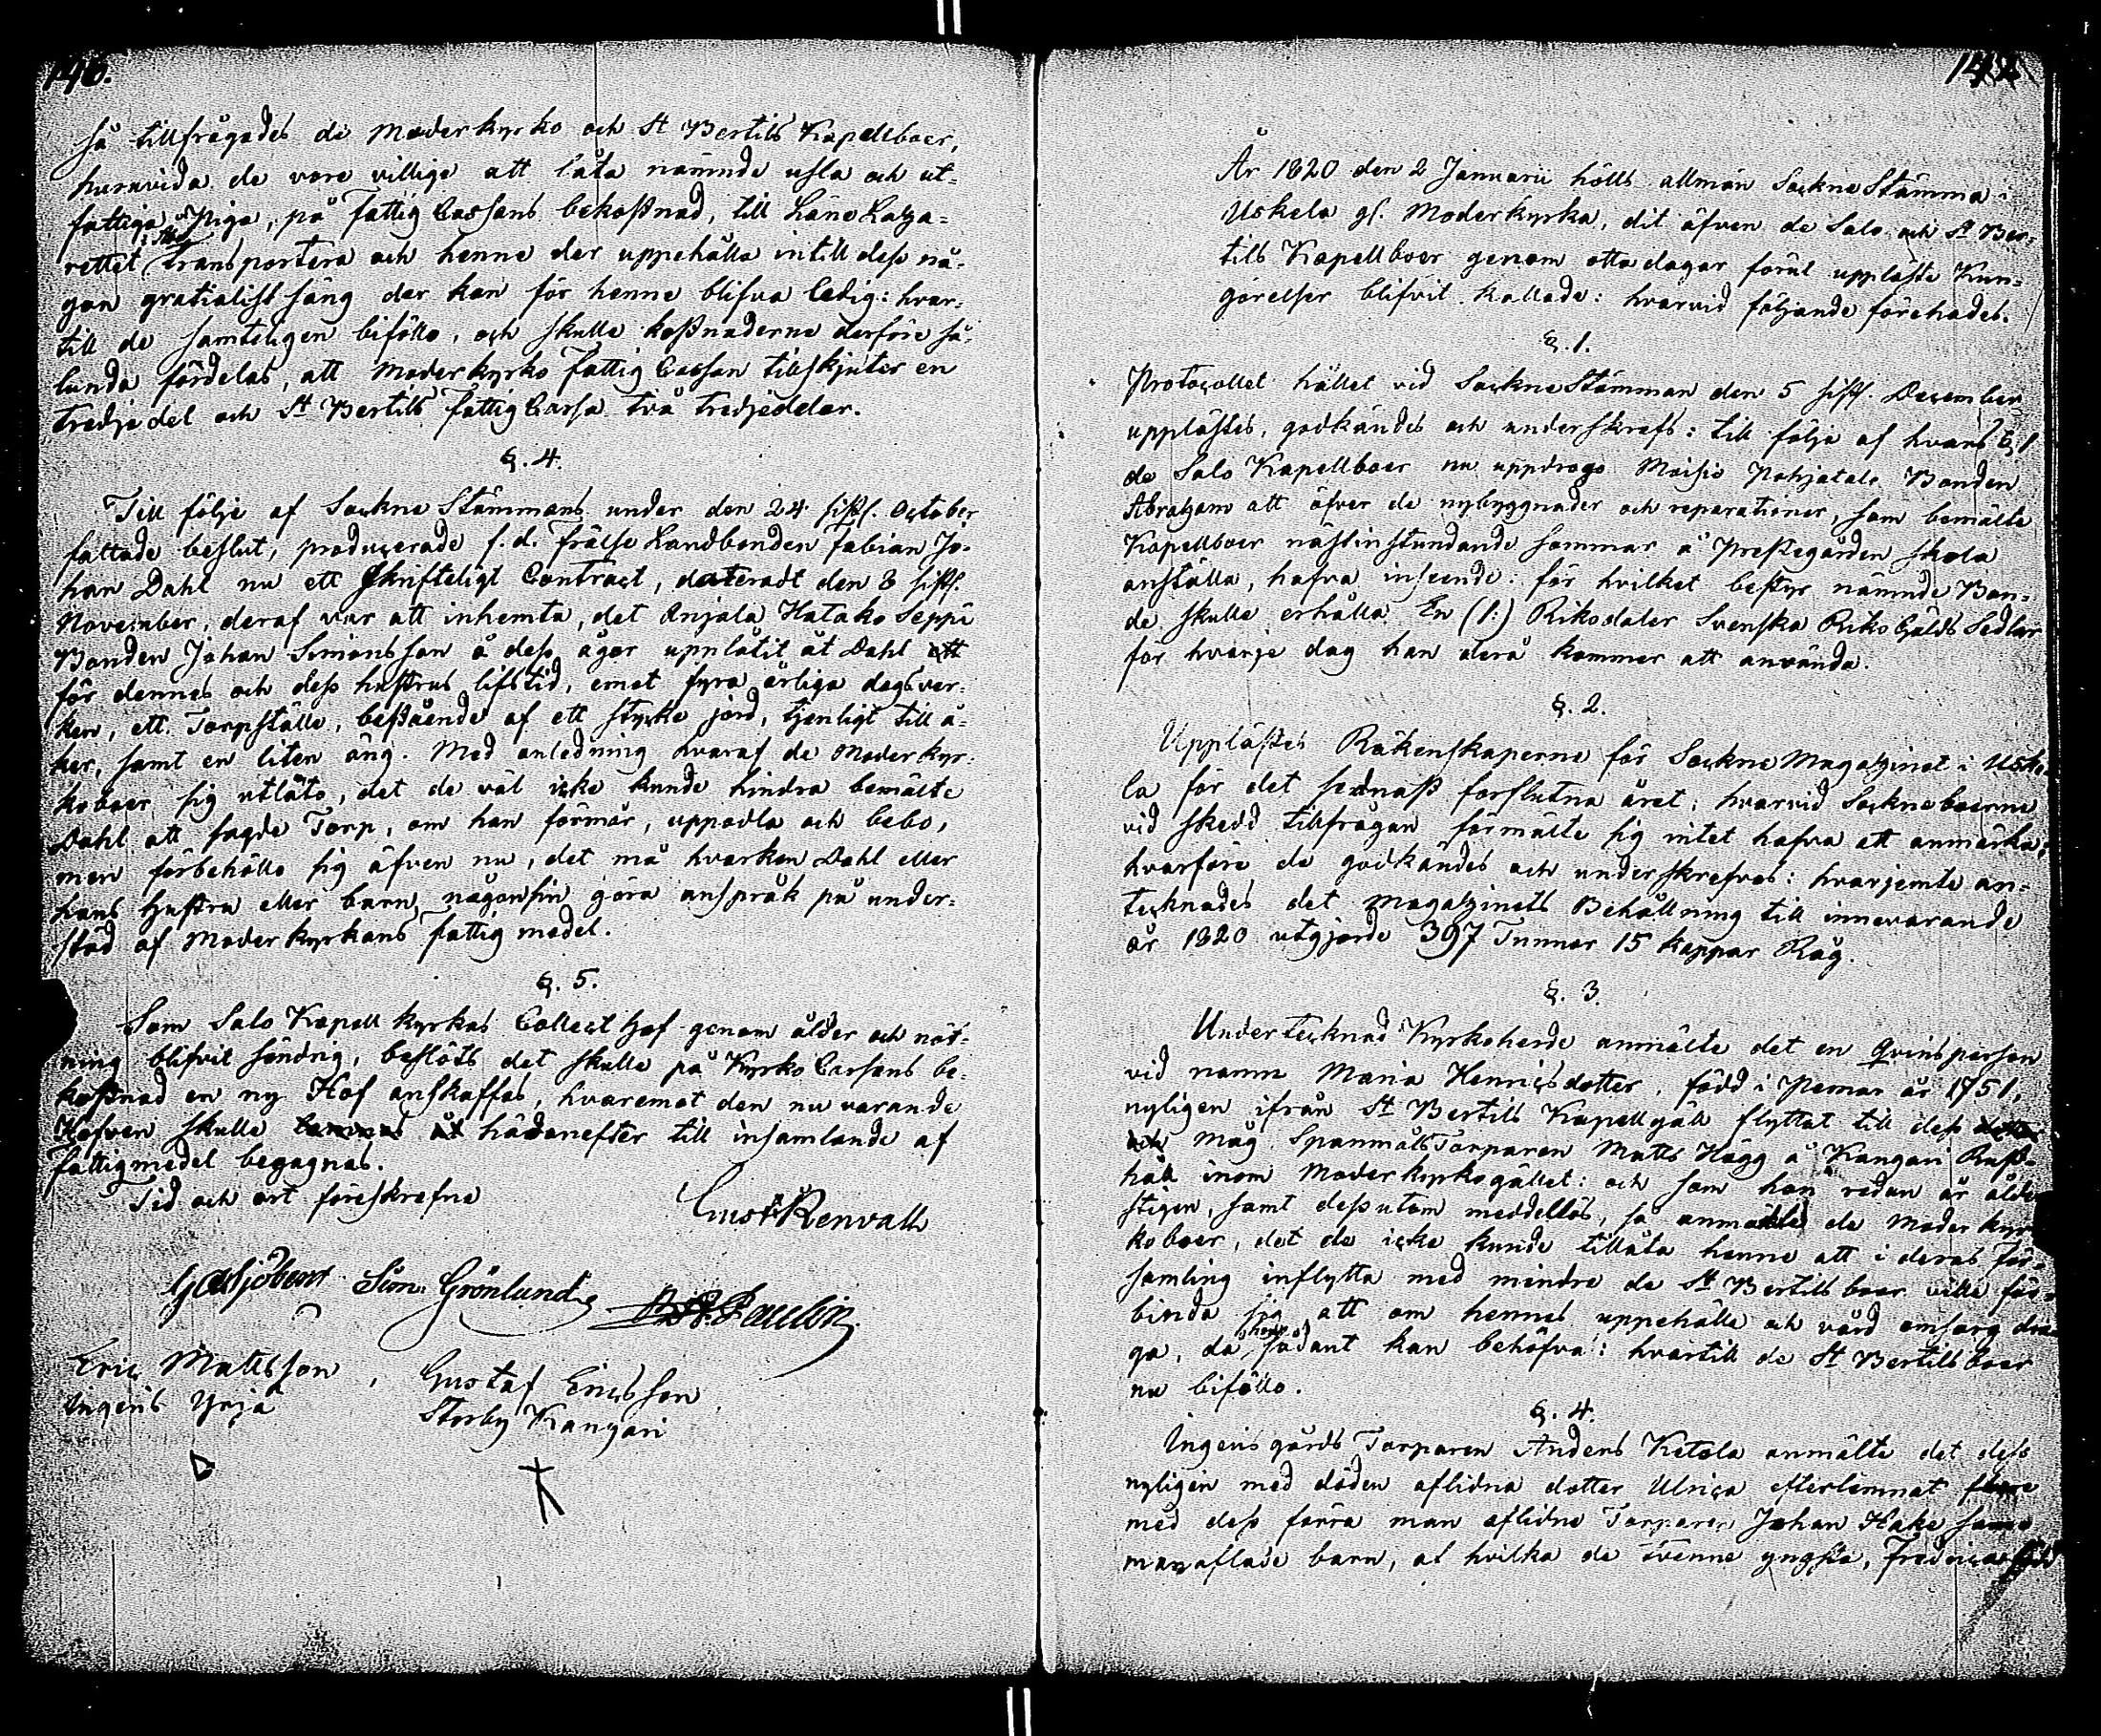 140.
så tillfrågades de Moderkyrko och St Bertils Kapellboer,
huruvida de vore villige att låta nämnde usla och ut=
fattiga Piga, på Fattig Cassans bekostnad, till Läns Laza=
rettet transportera och henne der uppehålla intill dess nå=
gon gratialist säng der kan för henne blifva ledig: hvar=
till de samteligen biföllo, och skulle kostnaderne derföre så=
lunda fördelas, att Moderkyrko Fattig Cassan tillskjuter en
tredjedel och St Bertils Fattig Cassa två tredjedelar.
§. 4.
Till följe af SockneStämmans under den 24 sistl. October
fattade beslut, producerade f. d. Frälse Landbonden Fabian Jo=
han Dahl nu ett Skrifteligt Contract, dateradt den 8 sistl.
November, deraf var att inhemta, det Anjala Hatako Seppä
Bonden Johan Simonsson å dess ägor upplåtit åt Dahl ett
för dennes och dess hustrus lifstid, emot fyra årliga dagsver=
ken, ett Torpställe, bestående af ett stycke jord, tjenligt till å=
ker, samt en liten äng. Med anledning hvaraf de Moderkyr=
koboer sig utläto, det de väl icke kunde hindra bemälte
Dahl att sagde Torp, om han förmår, uppodla och bebo,
men förbehöllo sig äfven nu, det må hvarken Dahl eller
hans Hustru eller barn någonsin göra anspråk på under=
stöd af Moderkyrkans fattig medel.
§. 5.
Som Salo Kapell kyrkas Collect Hof genom ålder och nöt=
ning blifvit söndrig, beslöts det skulle på Kyrko Cassans be=
kostnad en ny Hof anskaffas, hvaremot den nu varande
Hofven skulle hädanefter till insamlande af
fattigmedel begagnas.
Tid och ort föreskrefne
Gust Renvall
Sim Grönlund
Paulin
Eric Mattsson, Gustaf Ericsson
Ingeris Yrjä Storby Kangari
År 1820 den 2 Januarii hölls allmän SockneStämma i
Uskela gl. Moderkyrka, dit äfven de Salo och St Ber=
tils Kapellboer genom otta dagar förut uppläste Kun=
görelser blifvit kallade: hvarvid följande förehades.
§. 1.
Protocollet hållet vid SockneStämman den 5 sistl. December
upplästes, godkändes och underskrefs: till följe af hvars § 1
de Salo Kapellboer nu uppdrogo Moisio Pohjatalo Bonden
Abraham att öfver de nybyggnader och reparationer, som bemälte
Kapellboer nästinstundande sommar å Prestegården skola
anställa, hafva inseende: för hvilket bestyr nämnde Bon=
de skulle erhålla En (1:) Riksdaler Svenska Riks Gälds Sedlar
för hvarje dag han derå kommer att använda.
§. 2.
Upplästes Räkenskaperne för Sockne Magazinet i Uske
la för det sednast förflutna året; hvarvid Sockneboerne
vid skedd tillfrågan förmälte sig intet hafva att anmärka;
hvarföre de godkändes och underskrefvos: hvarjemte an=
tecknades det Magazinets Behållning till innevarande
år 1820 utgjorde 397 Tunnor 15 kappar Råg.
§. 3.
Undertecknad Kyrkoherde anmälte det en Qvinsperson
vid namn Maria Henricsdotter, född i Pemar år 1751,
nyligen ifrån St Bertils Kapellgäll flyttat till dess
Måg SpanmålsTorparen Matts Hägg å Kangari Rust=
håll inom Moderkyrkogället: och som hon redan är ålder
stigen, samt dessutom medellös, så anmälde de Moderkyr
koboer, det de icke kunde tillåta henne att i deras för=
samling inflytta med mindre de St Bertilsboer ville för=
binda sig att om hennes uppehälle och vård omsorg dra=
ga, då hon sådant kan behöfva: hvartill de St Bertilsboer
nu biföllo.
§. 4.
Ingeris gårds Torparen Anders Ketola anmälte det dess
nyligen med döden aflidna dotter Ulrica efterlemnat
med dess förra man aflidne Torparen Johan Hake
manaflade barn, af hvilka de tvenne yngsta, Fredrica